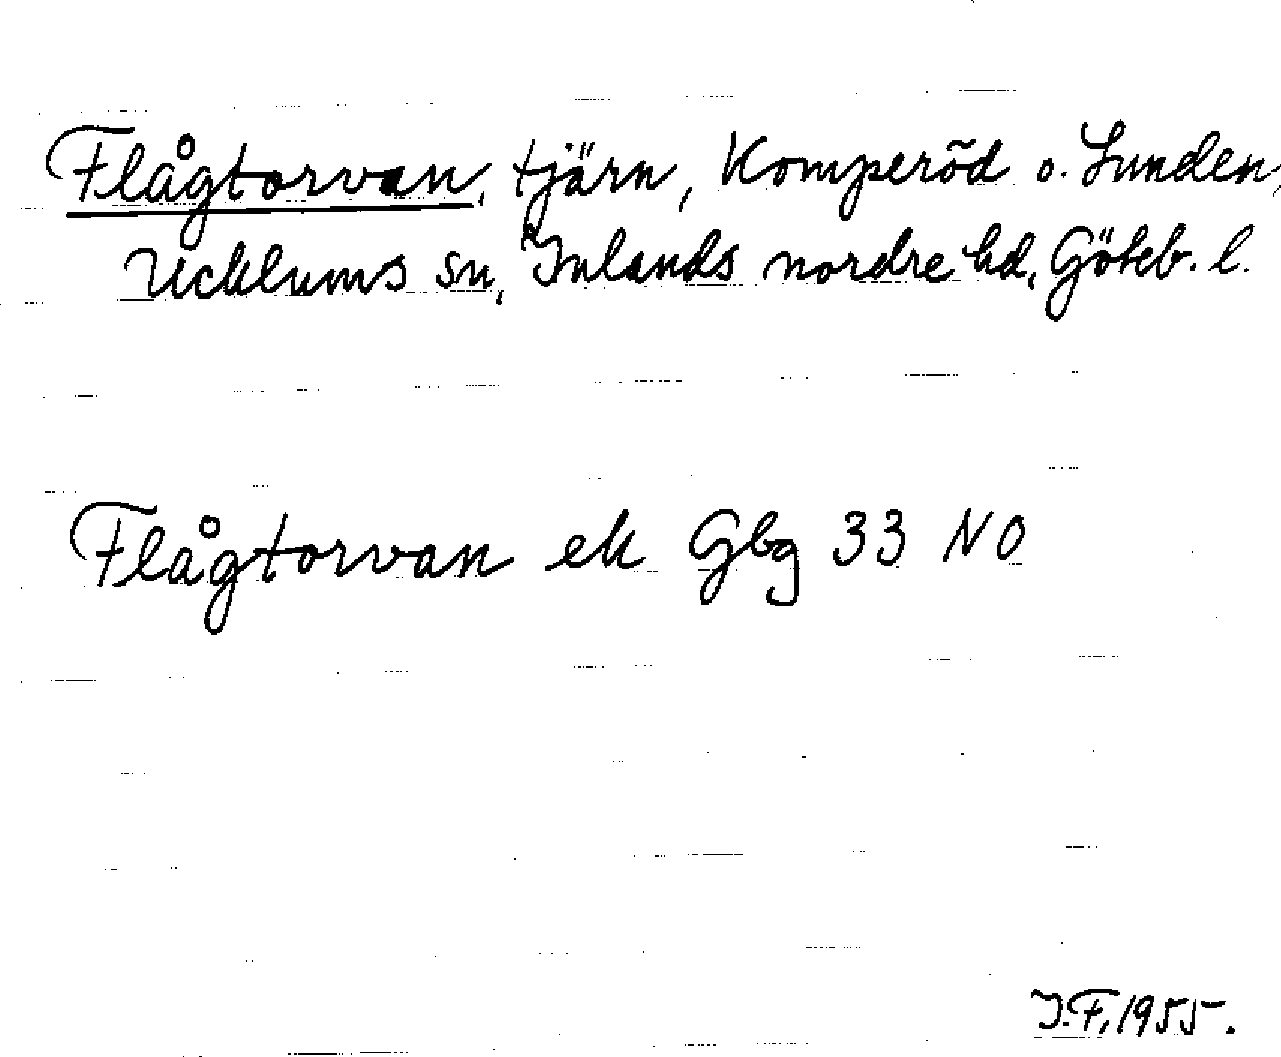 Flågtorvan, tjärn, Komperöd o. Lunden,
Ucklums sn, Inlands nordre hd, Göteb. l.
Flågtorvan ek Gbg 33 NO
J.F. 1955.